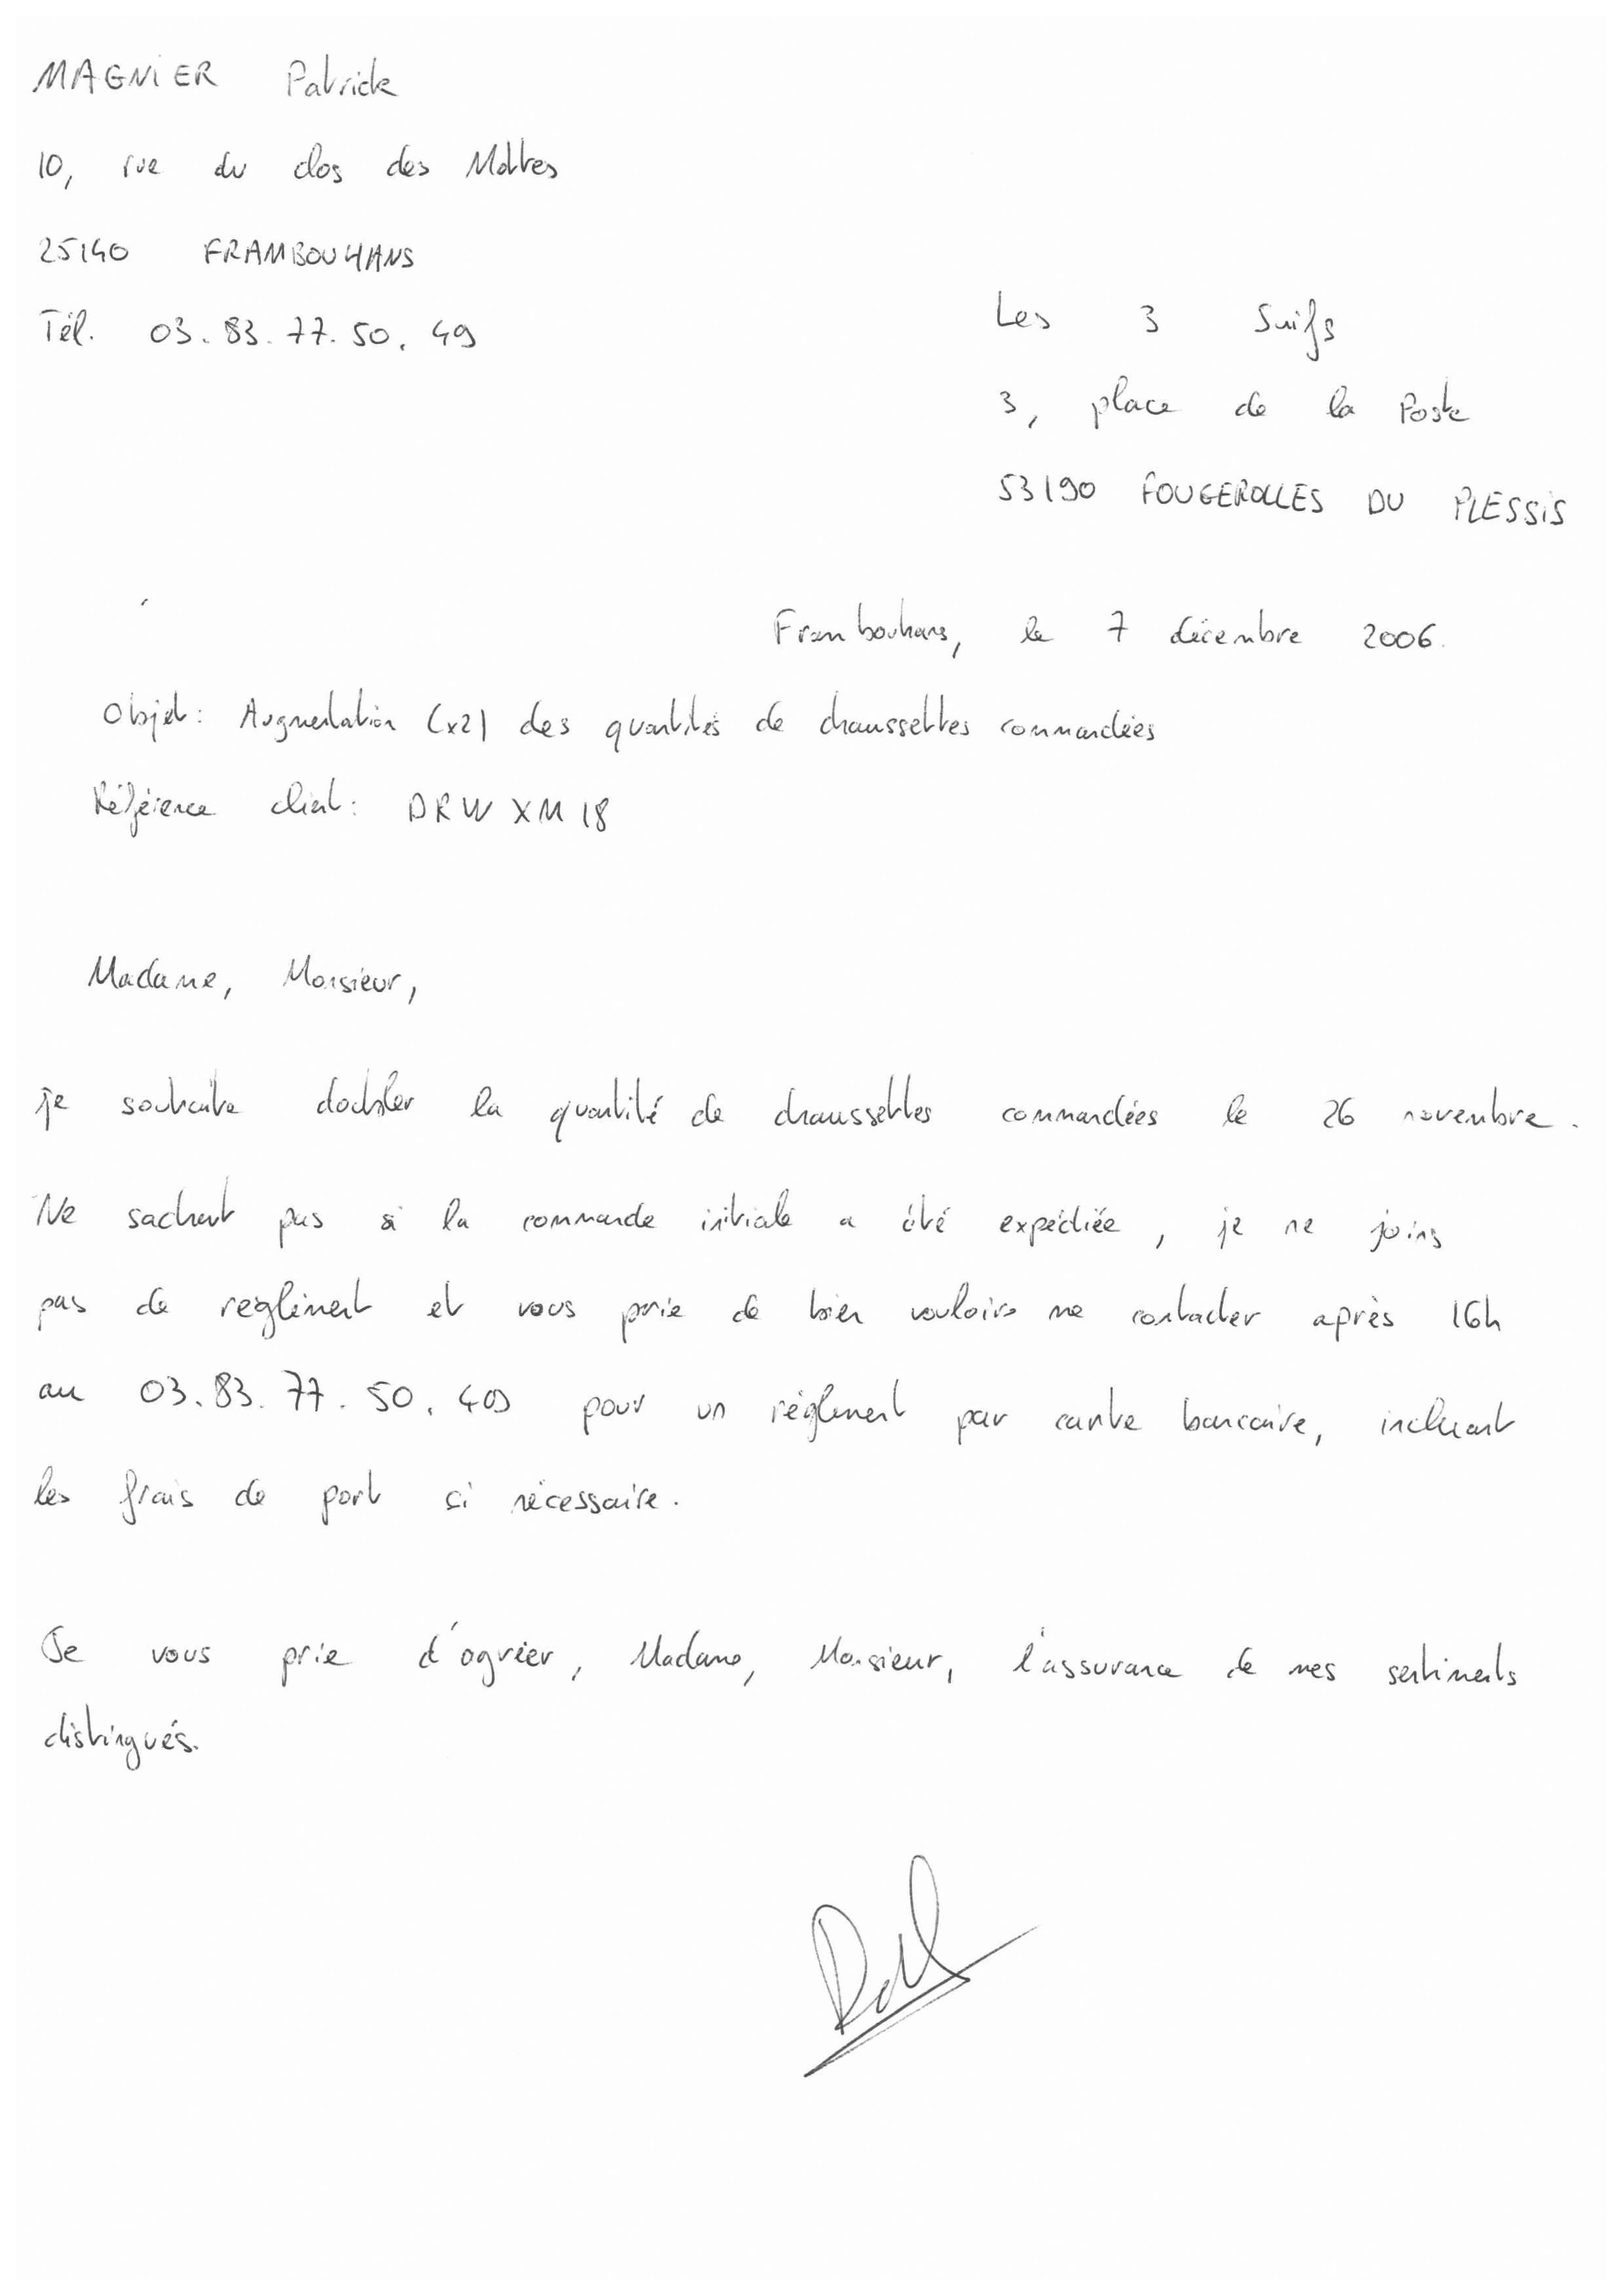 MAGNIER Patrick
10, rue du clos des Mottes
25140 FRAMBOUHANS
Tél. 03.83.77.50.49
Les 3 Suifs
3, place de la Poste
53190 FOUGEROLLES DU PLESSIS
Frambouhans, le 7 décembre 2006.
Objet: Augmentation (x2) des quantités de chaussettes commandées
Référence client: DRWXM18
Madame, Monsieur,
je souhaite doubler la quantité de chaussettes commandées le 26 novembre.
Ne sachant pas si la commande initiale a été expédiée, je ne joins
pas de règlement et vous prie de bien vouloir me contacter après 16h
au 03.83.77.50.49 pour un règlement par carte bancaire, incluant
les frais de port si nécessaire.
Je vous prie d'agréer, Madame, Monsieur, l'assurance de mes sentiments
distingués.